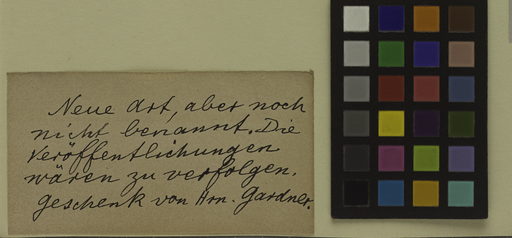 Neue Art, aber noch
nicht benannt. Die
Veröffentlichungen
wären zu verfolgen.
Geschenk von Hrn. Gardner.